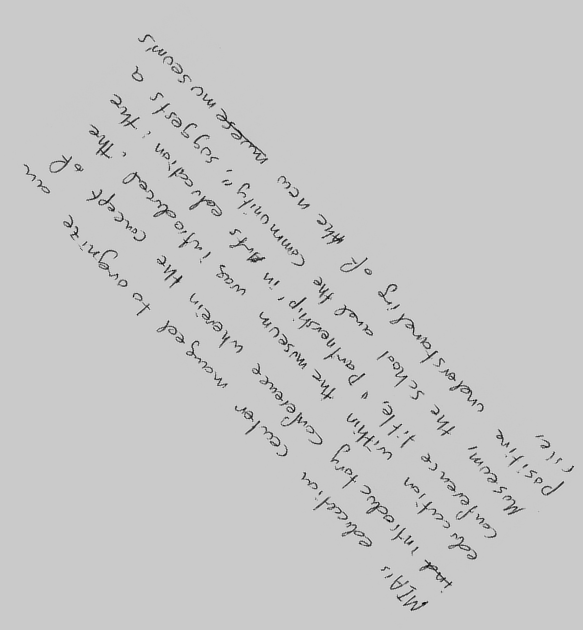 MIA's education center manged to orgnize an
introductory conference wherein the concept of
education within the museum was introduced. the
conference title, "partnership in Arts education: the
Museum, the school and the community", suggests a
positive understanding of the new museum's
rile,